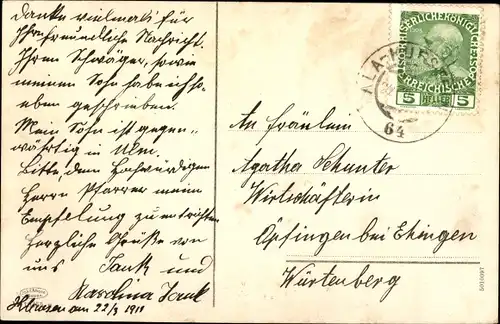 Danke vielmals für
Ihre freundliche Nachricht.
Ihrem Schwager, sowie
meinem Sohn habe ich so
eben geschrieben.
Mein Sohn ist gegen-
wärtig in Ulm.
Bitte dem Hochwürdigen
Herrn Pfarrer meine
Empfelung zu entrichten
Herzliche Grüße von
uns Tank und
Karolina Tank
am 22/3 1911
KAISERLICHE KÖNIGLICHE
ÖSTERREICHISCHE
5 HELLER 5
64
An Fräulein
Agatha Schunter
Wirtschäfterin
Öpfingen bei Ehingen
Würtenberg